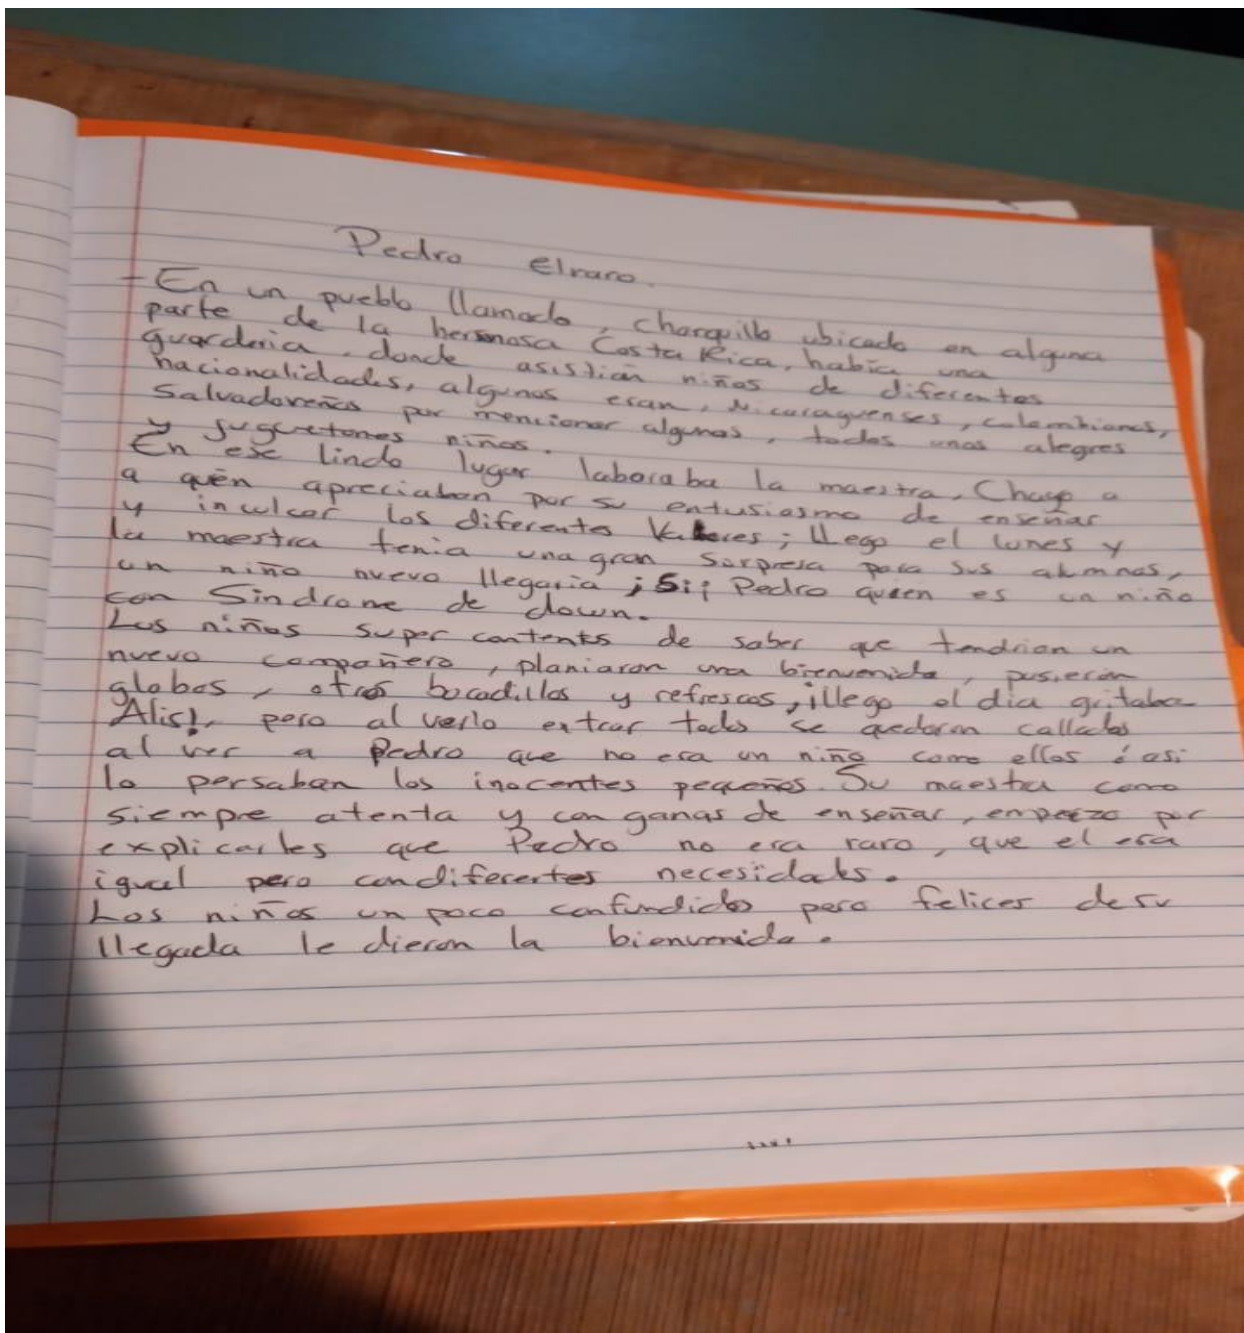 Pedro elraro.
- En un pueblo llamado, charquillo ubicado en alguna
parte de la hermosa Costa Rica, había una
guarderia, donde asistian niños de diferentes
nacionalidades, algunos eran, Nicaraguenses, colombianos,
Salvadoreños por mencionar algunos, todos unos alegres
y juguetones niños.
En ese lindo lugar laboraba la maestra, Chayo a
a quén apreciaban por su entusiasmo de enseñar
y inculcar los diferentes Valores; llego el lunes y
la maestra tenia una gran sorpresa para sus alumnos,
un niño nuevo llegaria ¡Si¡ Pedro quien es un niño
con Sindrome de down.
Los niños super contentos de saber que tendrian un
nuevo compañero, planiaron una bienvenida, pusieron
globos, otros bocadillos y refrescos, ¡llego el dia gritaba
Alis!, pero al verlo entrar todos se quedaron callados
al ver a Pedro que no era un niño como ellos ó asi
lo pensaban los inocentes pequeños. Su maestra como
siempre atenta y con ganas de enseñar, empezo por
explicarles que Pedro no era raro, que el era
igual pero condiferentes necesidades.
Los niños un poco confundidos pero felices desu
llegada le dieron la bienvenida.